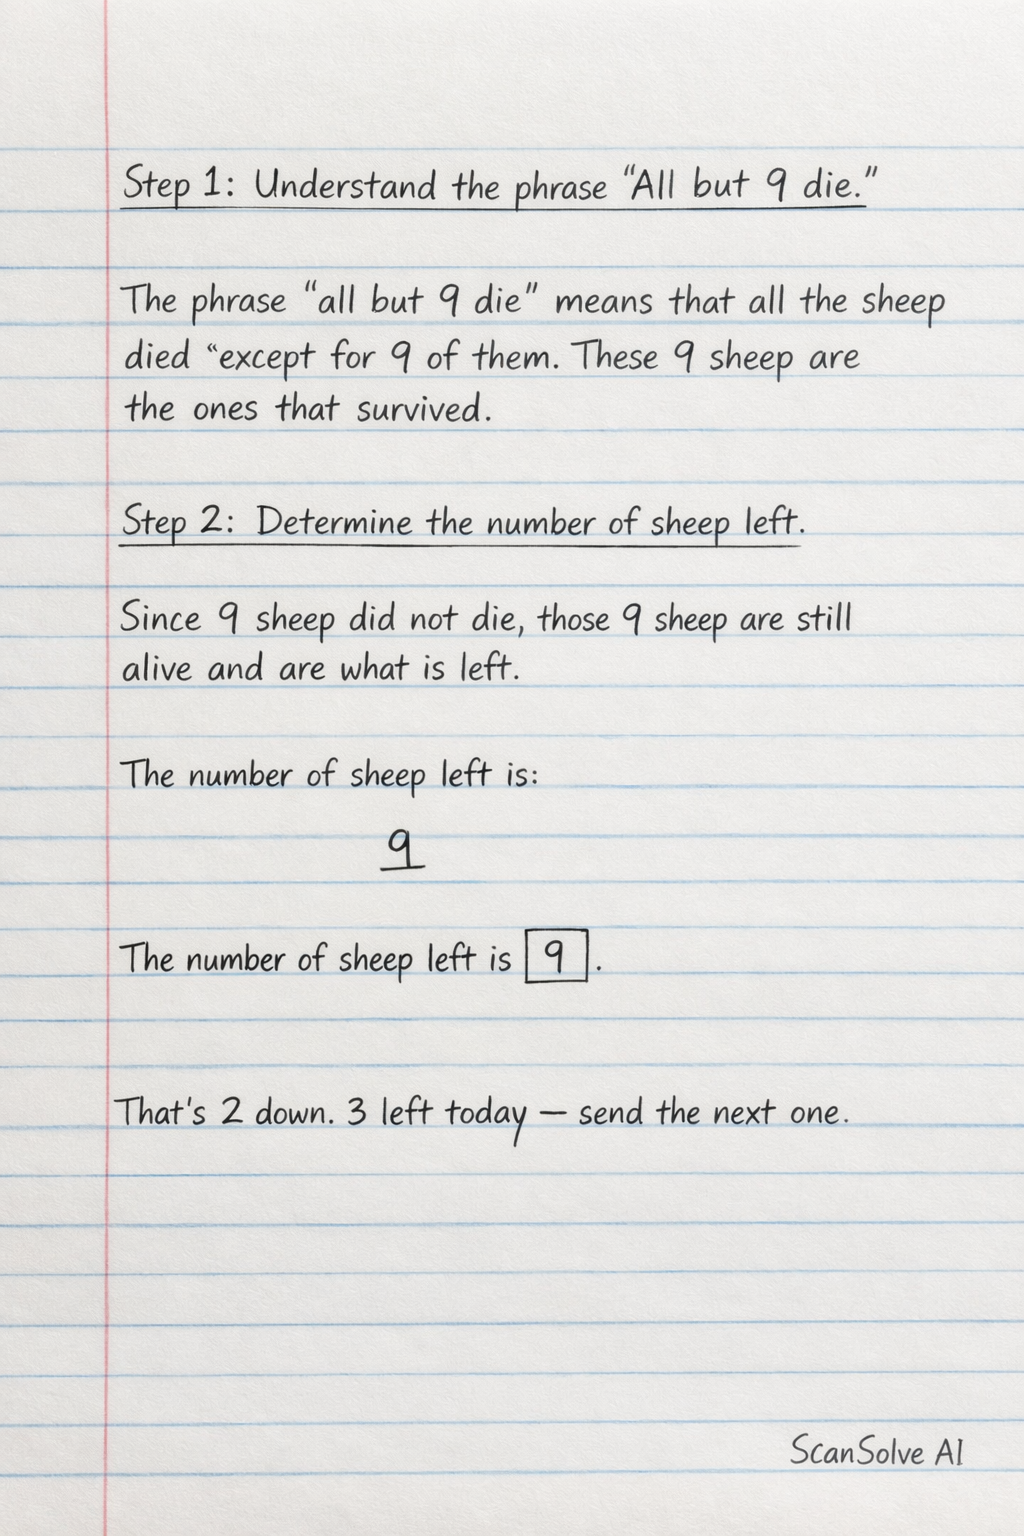 Step 1: Understand the phrase “All but 9 die.”
The phrase “all but 9 die” means that all the sheep
died “except for 9 of them. These 9 sheep are
the ones that survived.
Step 2: Determine the number of sheep left.
Since 9 sheep did not die, those 9 sheep are still
alive and are what is left.
The number of sheep left is:
9
The number of sheep left is 9.
That's 2 down. 3 left today — send the next one.
ScanSolve AI